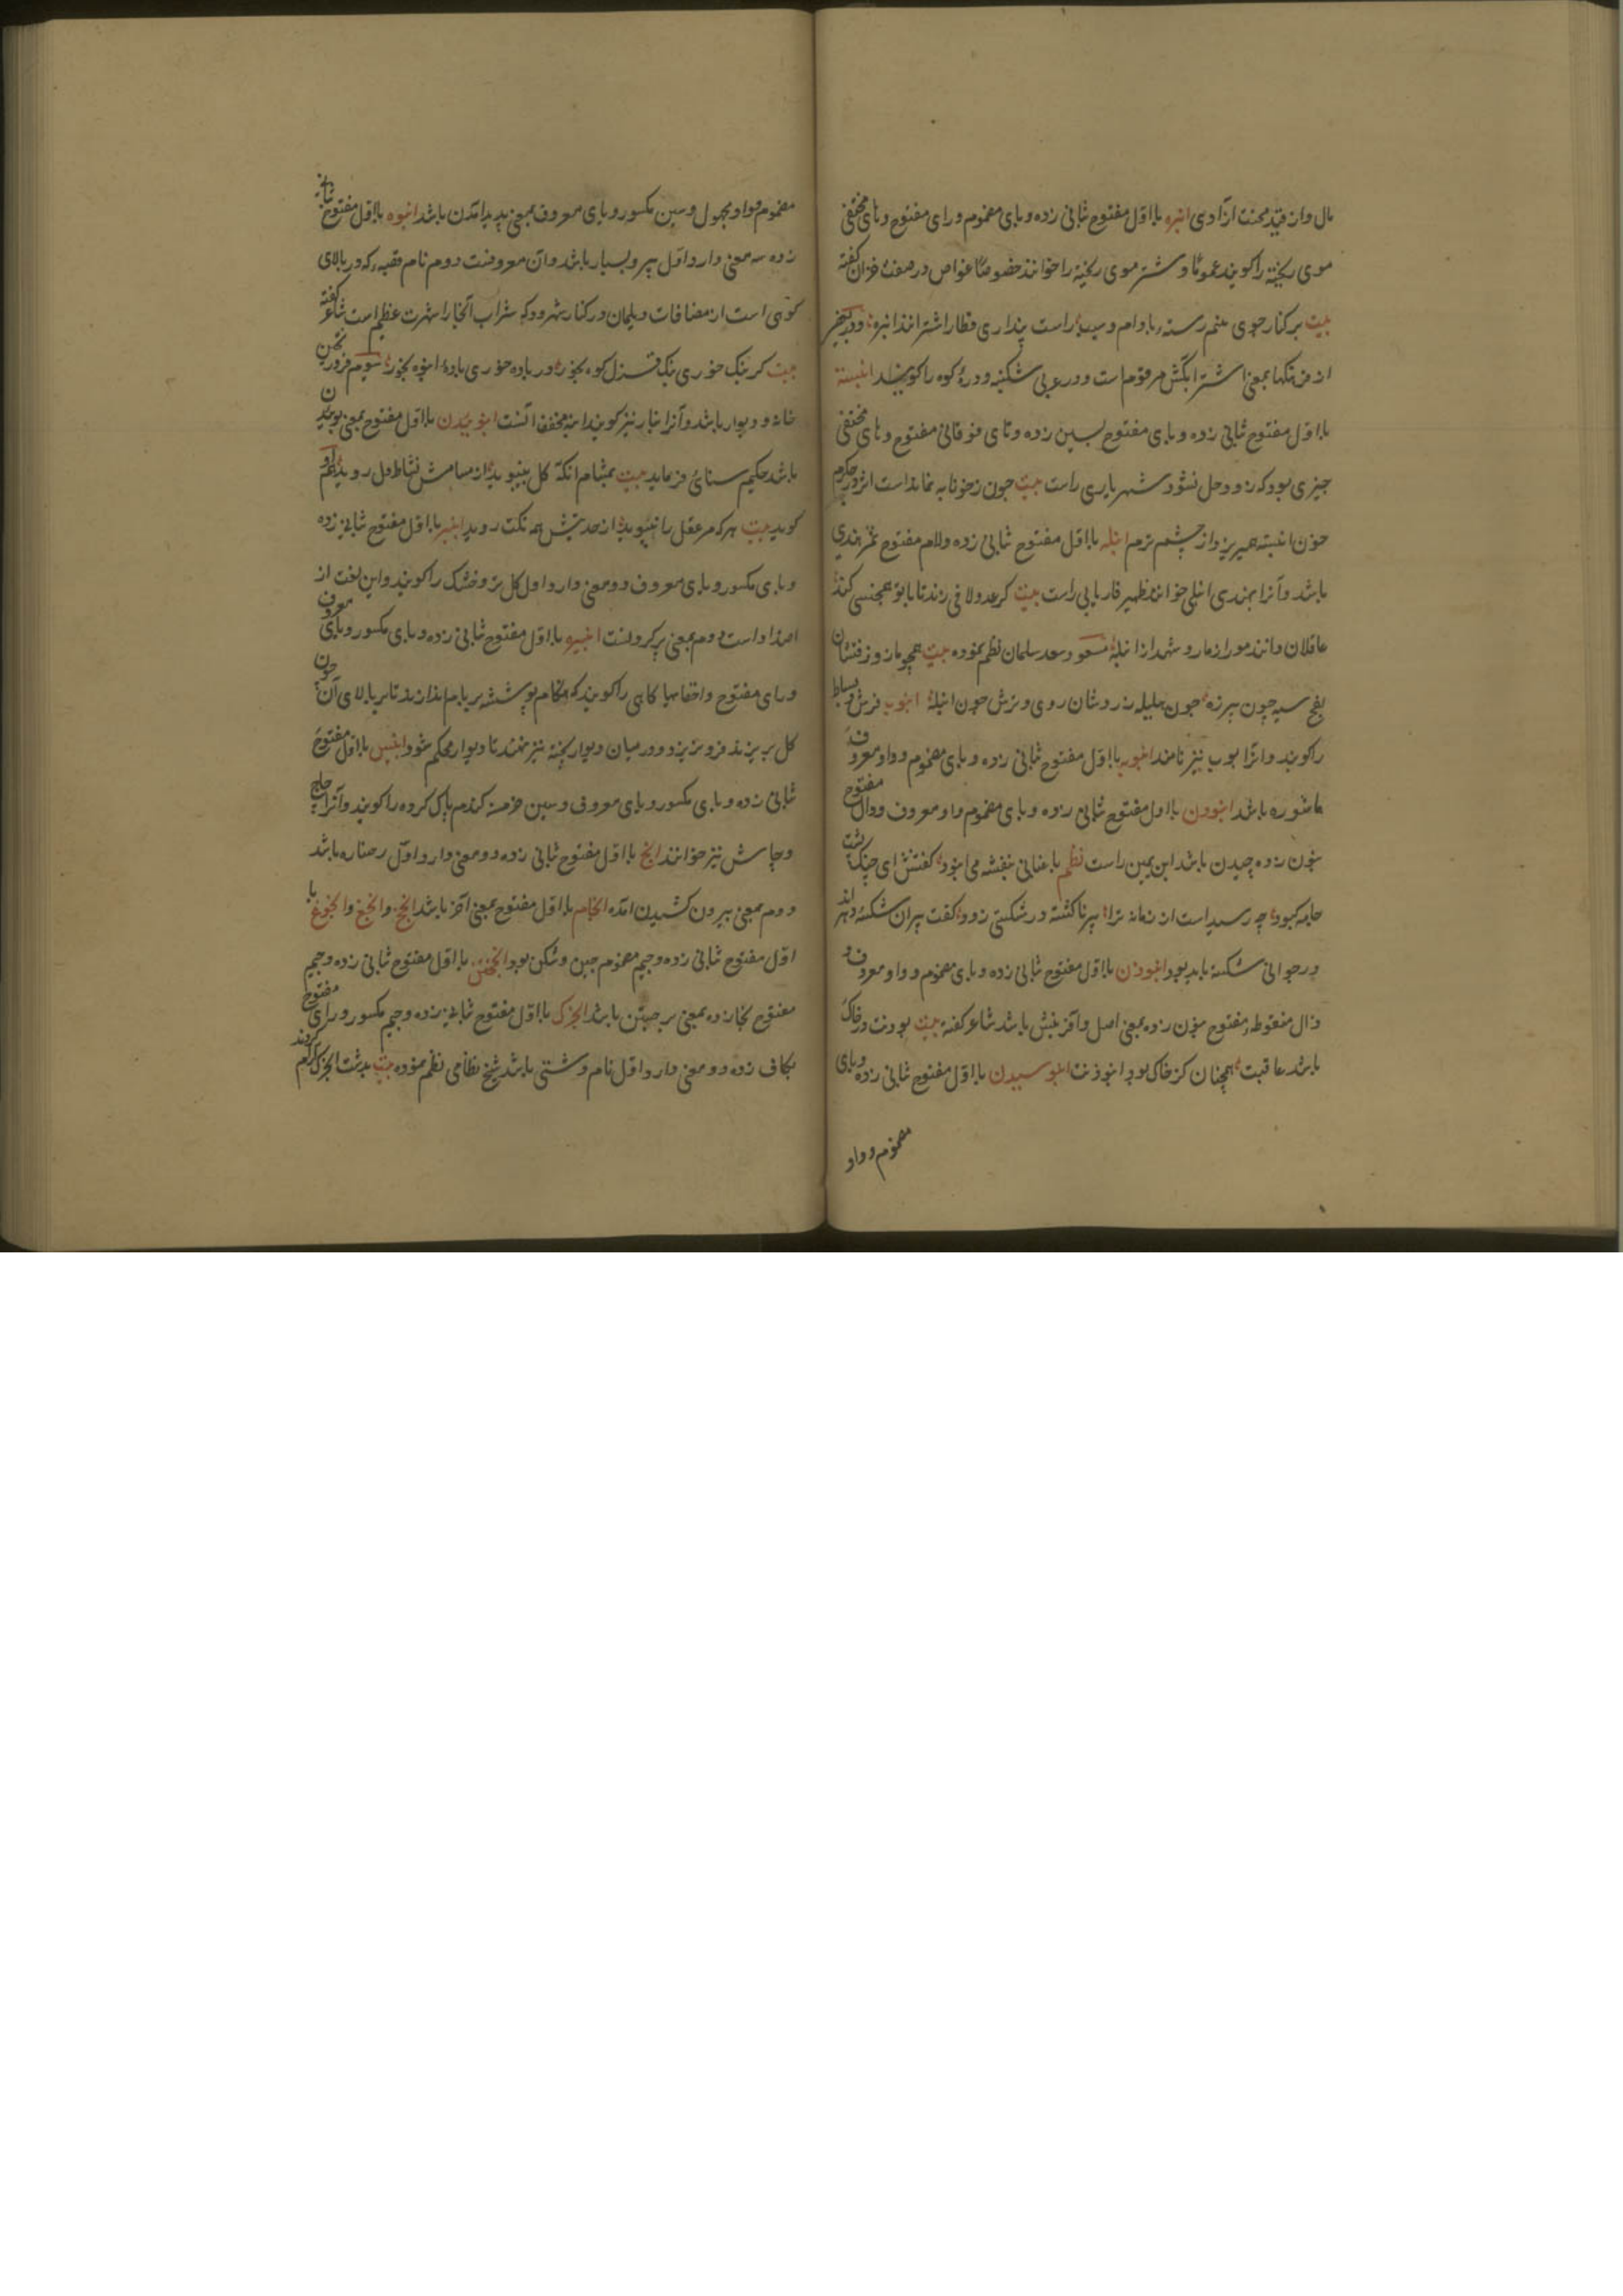 مال و از قید محنت آزادی انبره با اول مفتوح ثانی زده و بای مضموم و رای مفتوح و های مختفی
موی ریخته را کویند عموما و شتر موی ریخته را خوانند خصوصا غواص در صفت خزان کفته
بیت بر کنار جوی بینم رسته بادام و سیب راست پنداری قطار اشترانند انبره و در
از فرهنکها بمعنی اشتر آبکش مرقوم است و در عربی شکنبه و درهٔ کوه را کویند انبسته
با اول مفتوح ثانی زده و بای مفتوح بسین زده و تای فوقانی مفتوح و های مختفی
چیزی بود که زود حل نشود شهریاری راست بیت چون زخونابه نماند است اثر در جکرم
خون انبسته همیریزد از چشم ترم انبله با اول مفتوح ثانی زده و لام مفتوح تمر هندی
باشد و آنرا بهندی انبلی خوانند ظهیر فاریابی راست بیت کر عدو لافی زند تا با تو همجنسی کند
عاقلان دانند مورد از مار و شهد از انبله مسعود سعد سلمان نظم نموده بیت همچو مازو زفتشان
بفج سیه چون بیرزه چون هلیله زردشان روی و ترش چون انبله انبوب فرش و بساط
را کویند و انرا بوب نیز نامند انبوبه با اول مفتوح ثانی زده و بای مضموم و واو معروف
ماشوره باشد انبودن با اول مفتوح ثانی زده و بای مضموم واو معروف و دال مفتوح
بنون زده چیدن باشد ابن یمین راست نظم باغبانی بنفشه می انبود کفتش ای چنک پشت
جامه کبود چه رسید است از زمانه ترا پیر ناکشته در شکستی زود کفت پیران شکسته دهر اند
در جوانی شکسته باید بود انبوذن با اول مفتوح ثانی زده و بای مضموم و واو معروف و
ذال منقوطه مفتوح بنون زده بمعنی اصل و آفرینش باشد شاعر کفته بیت بودنت در خاک
باشد عاقبت همچنان کز خاک بود انبوذنت انبوسیدن با اول مفتوح ثانی زده و بای
مضموم و واو
مضموم و واو مجهول و سین مکسور و یای معروف بمعنی پدید آمدن باشد انبوه با اول مفتوح ثانی
زده سه معنی دارد اول پیر و بسیار باشد و آن معروفست دوم نام قصبه که در بالای
کوهی است از مضافات دیلمان در کنار شهرود که شراب آنجا را شهرت عظیم است شاعر کفته
بیت کر بنک خوری بنک قزل کوه بخور ور باده خوری بادهٔ انبوه بخور سیوم فرو ریختن
خانه و دیوار باشد و آنرا انبار نیز کویند انبه مخفف آنست انبوییدن با اول مفتوح بمعنی بوییدن
باشد حکیم سنائی فرماید بیت بمشام آنکه کل ببنبوید از مسامش نشاط دل روید و هم او
کوید بیت هر که مر عقل را ببنبوید از حدیثش همه نکت روید انبیر با اول مفتوح ثانی زده
و بای مکسور و یای معروف دو معنی دارد اول کل تر و خشک را کویند و این لغت از
اضداد است دوم بمعنی پر کردنست انبیره با اول مفتوح ثانی زده و بای مکسور و یای معروف
و رای مفتوح و اخفای ها کاهی را کویند که هنکام پوشش بر بام اندازند تا بر بالای آن چون
کل بریزند فرو نریزد و در میان دیوار پخته نیز نهند تا دیوار محکم شود انبیس با اول مفتوح
ثانی زده و بای مکسور و یای معروف و سین خرمنه کندم پاک کرده را کویند و آنرا جاج
و چاش نیز خوانند انج با اول مفتوح ثانی زده دو معنی دارد اول رخساره باشد
دوم بمعنی بیرون کشیدن آمده انجام با اول مفتوح بمعنی آخر باشد انجخ و انجغ و انجوغ با
اول مفتوح ثانی زده و جیم مضموم چین و شکن بود انجختن با اول مفتوح ثانی زده و جیم
مفتوح بخا زده بمعنی برجستن باشد انجرک با اول مفتوح ثانی زده و جیم مکسور و رای مفتوح
بکاف زده دو معنی دارد اول نام دشتی باشد شیخ نظامی نظم نموده بیت بدشت انجرک آرام کردند